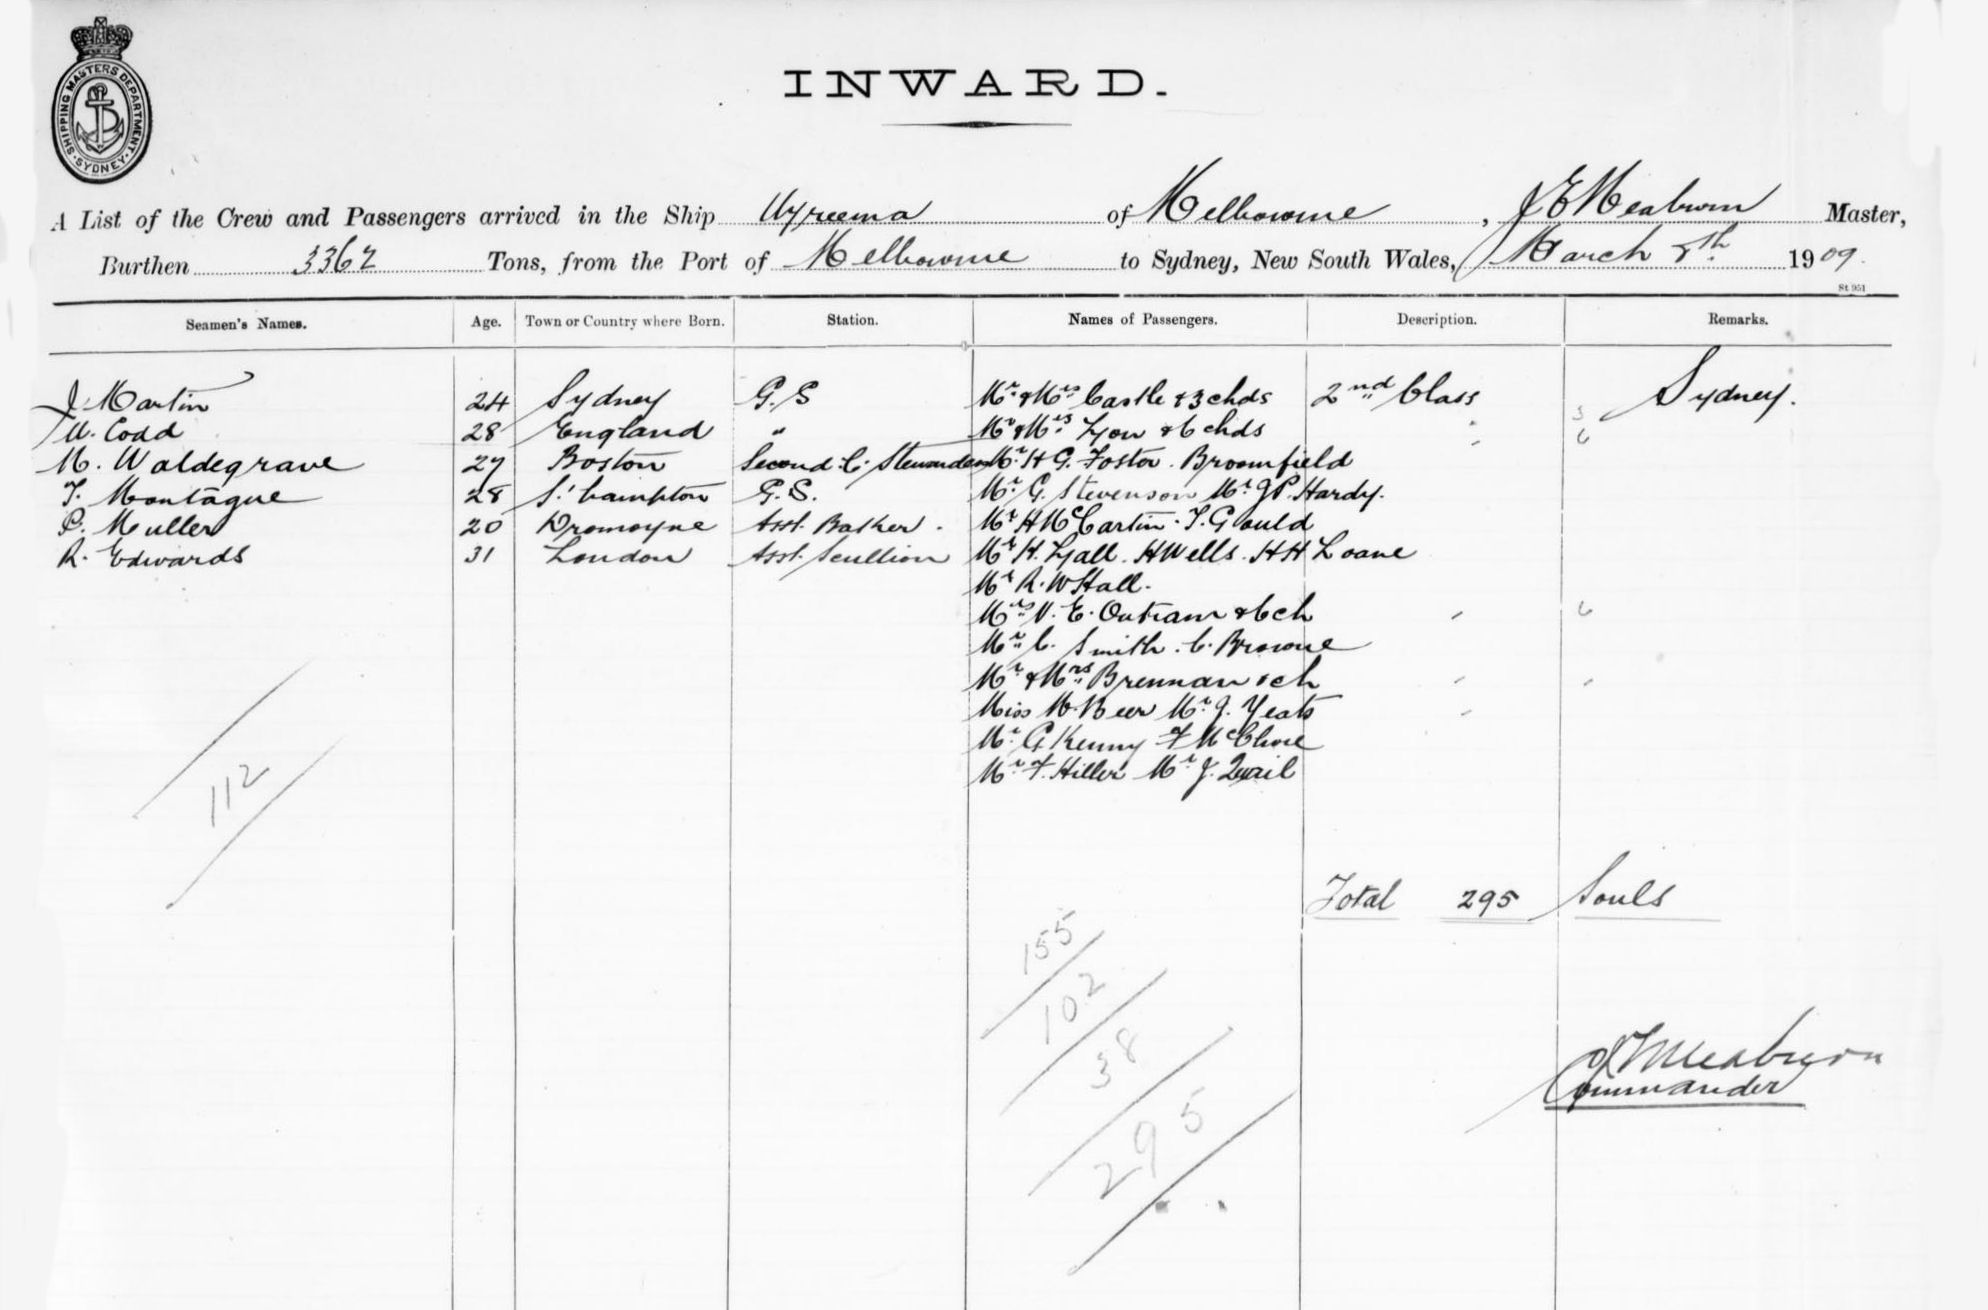 SHIPPING MASTERS DEPARTMENT. SYDNEY.
INWARD.
A List of the Crew and Passengers arrived in the Ship Wyreema of Melbourne, J E Meaburn Master,
Burthen 3362 Tons, from the Port of Melbourne to Sydney, New South Wales, March 8th 1909.
St 951
Seamen's Names. Age. Town or Country where Born. Station. Names of Passengers. Description. Remarks.
J Martin 24 Sydney G.S Mr. & Mrs Castle & 3 chds 2nd Class Sydney.
W. Codd 28 England " Mr & Mrs Lyon & 6 chds " 6
M. Waldegrave 27 Boston Second C. Stewardess Mr. H G. Foster. Broomfield
T. Montague 28 S'hampton G.S. Mr. G. Stevenson Mr. J P. Hardy.
P. Muller 20 Dromoyne Asst. Baker. Mr H McCartin. T. Gould
R. Edwards 31 London Asst. Scullion Mr H. Lyall. H Wells. H H Loane
Mr R. W Hall.
Mrs V. E. Outram & 6 ch " 6
Mr. C. Smith. C. Browne
Mr. & Mrs. Brennan & ch " "
Miss M. Beer Mr. J. Yeats "
Mr. G Kenny F McClure
Mr. F. Hiller Mr. J. Quail
112
Total 295 Souls
155
102
38
295
J E Meaburn
Commander